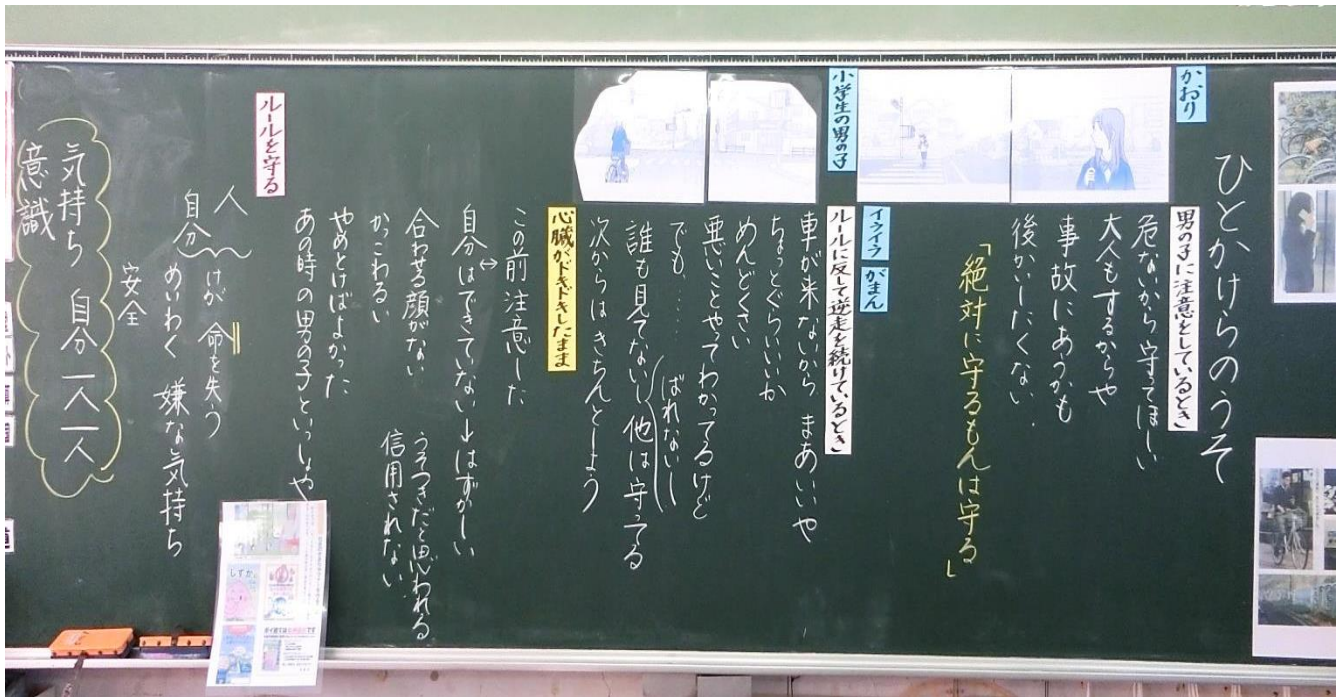 ひとかけらのうそ
かおり
男の子に注意をしているとき
危ないから守ってほしい
大人もするからや
事故にあうかも
後かいしたくない
「絶対に守るもんは守る」
小学生の男の子
イライラ
がまん
ルールに反して逆走を続けているとき
車が来ないから まあいいや
ちょっとぐらいいいか
めんどくさい
悪いことやってわかってるけど
でも……
ばれないし
誰も見てないし 他は守ってる
次からはきちんとしよう
心臓がドキドキしたまま
この前注意した
↔
自分はできていない→はずかしい
合わせる顔がない
うそつきだと思われる
かっこわるい
信用されない
やめとけばよかった
あの時の男の子といっしょや
ルールを守る
人
自分
けが 命を失う
めいわく 嫌な気持ち
安全
気持ち 自分 一人一人
意識
しずか